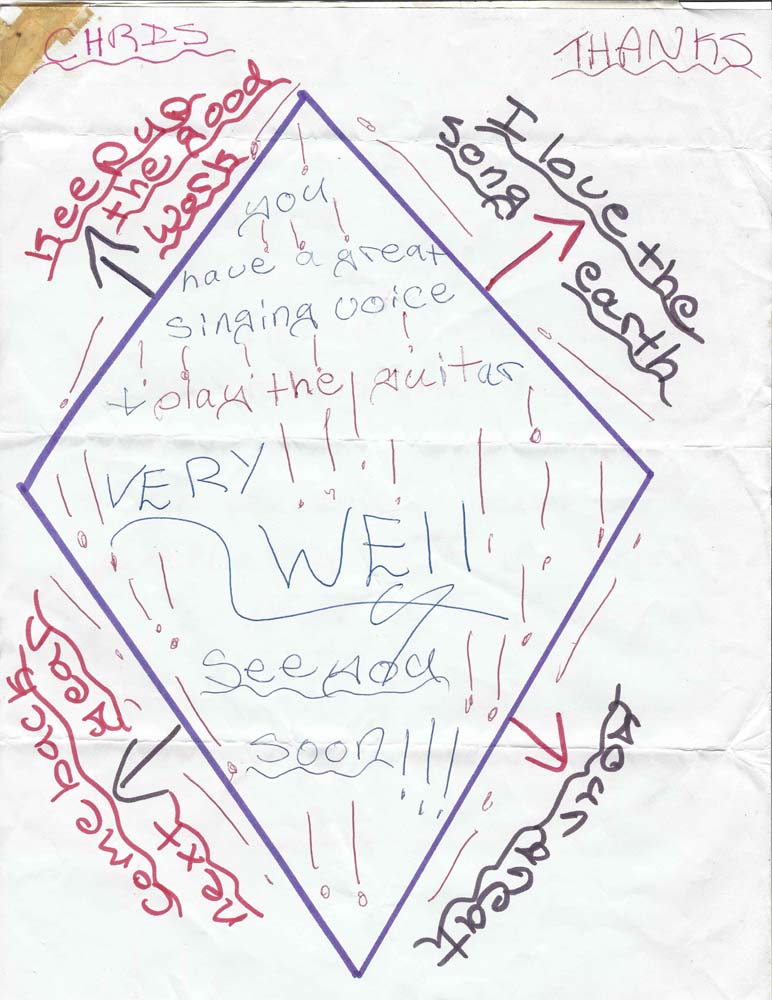 CHRIS
THANKS
Keep up
the good
work
I love the
earth
song
you
have a great
singing voice
+ play the guitar
VERY
WEll
See you
soon!!!
Come back
next
year
your great